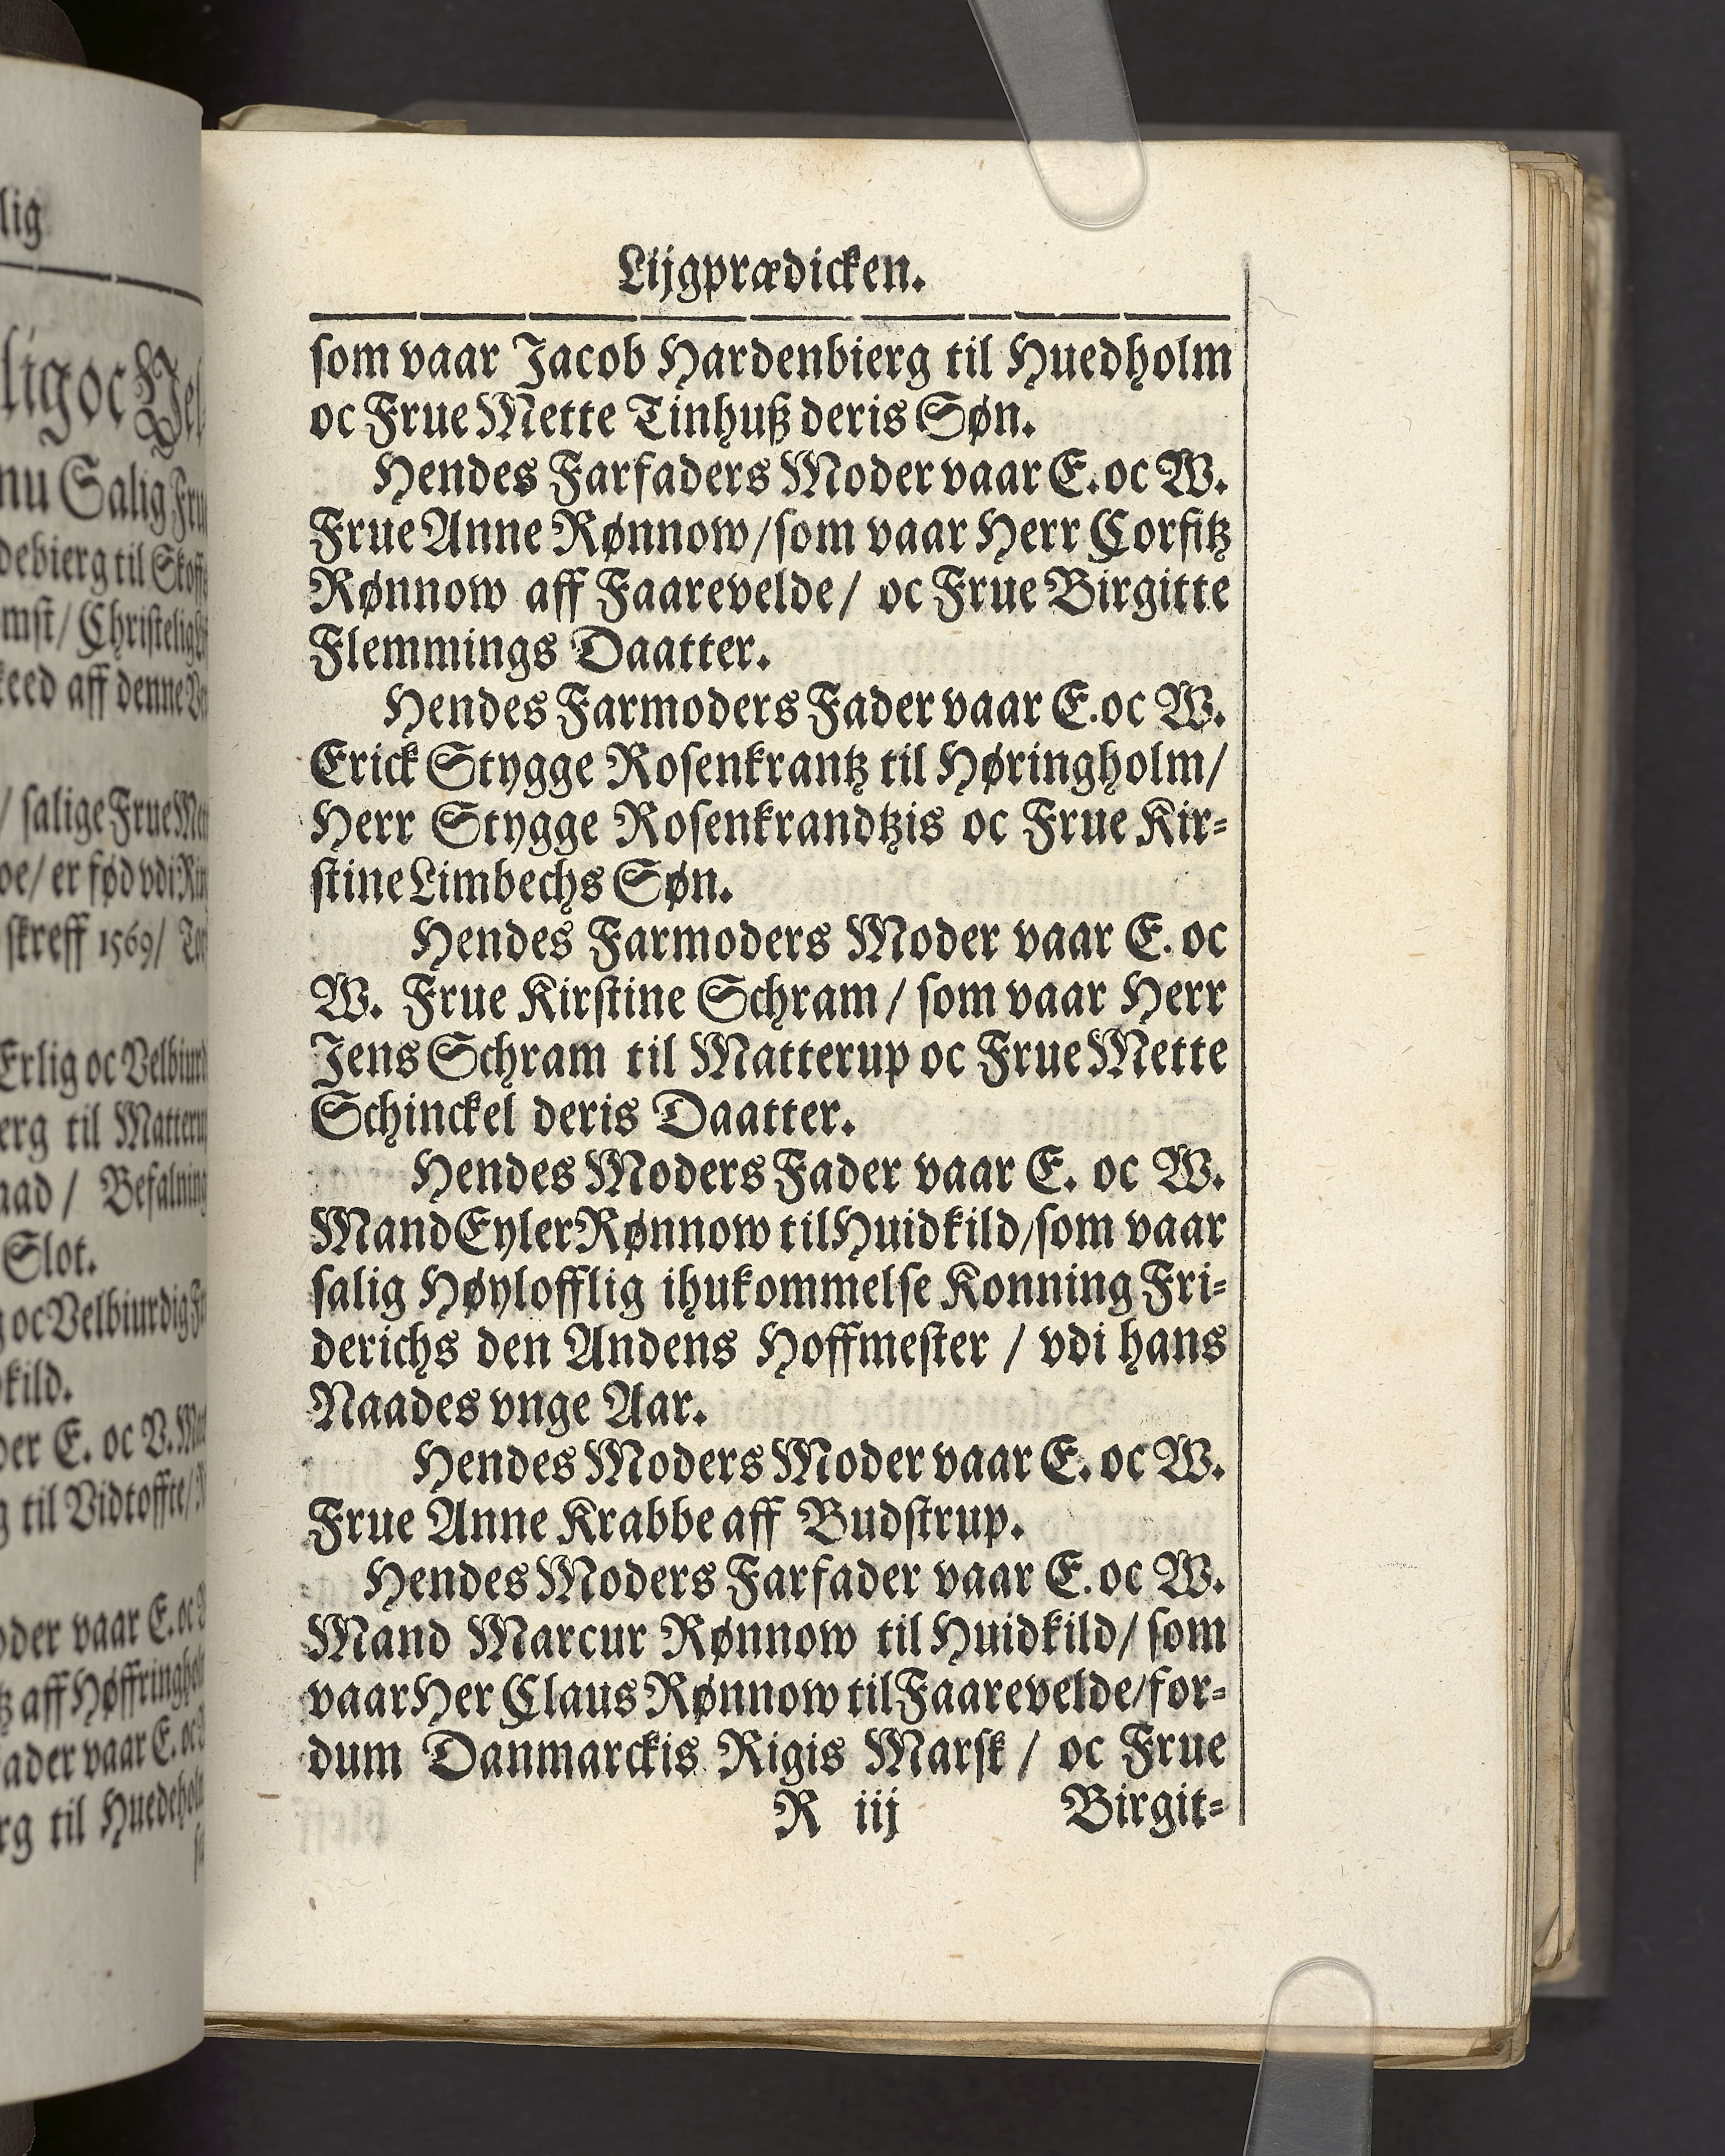 lig
lig oc
nu Salig
debierg til
mst/
keed aff denne
/ salige Frue
oe/ er fød vdi
skreff 1569/
Erlig oc Velbiurd
erg til
aad / Befalning
Slot.
oc Velbiurdig
kild.
der E. oc V.
til Vidtoffte/
oder vaar E. oc
aff
ader vaar E. oc
rg til
Lijgprædicken.
som vaar Jacob Hardenbierg til Huedholm
oc Frue Mette Tinhuß deris Søn.
Hendes Farfaders Moder vaar E. oc W.
Frue Anne Rønnow/som vaar Herr Corfitz
Rønnow aff Faarevelde/ oc Frue Birgitte
Flemmings Daatter.
Hendes Farmoders Fader vaar E. oc W.
Erick Stygge Rosenkrantz til Høringholm/
Herr Stygge Rosenkrandtzis oc Frue Kir-
stine Limbechs Søn.
Hendes Farmoders Moder vaar E. oc
W. Frue Kirstine Schram / som vaar Herr
Jens Schram til Matterup oc Frue Mette
Schinckel deris Daatter.
Hendes Moders Fader vaar E. oc W.
Mand Eyler Rønnow til Huidkild/som vaar
salig Høylofflig ihukommelse Konning Fri-
derichs den Andens Hoffmester / vdi hans
Naades vnge Aar.
Hendes Moders Moder vaar E. oc W.
Frue Anne Krabbe aff Budstrup.
Hendes Moders Farfader vaar E. oc W.
Mand Marcur Rønnow til Huidkild/ som
vaar Her Claus Rønnow til Faarevelde/for-
dum Danmarckis Rigis Marsk / oc Frue
R iij Birgit-